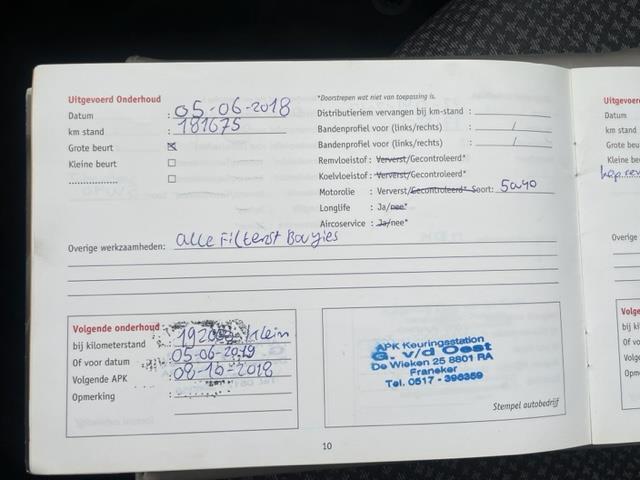 Uitgevoerd Onderhoud
Datum : 05-06-2018
km stand : 181675
Grote beurt
Kleine beurt
*Doorstrepen wat niet van toepassing is.
Distributieriem vervangen bij km-stand :
Bandenprofiel voor (links/rechts) : /
Bandenprofiel voor (links/rechts) : /
Remvloeistof : Ververst/Gecontroleerd*
Koelvloeistof : Ververst/Gecontroleerd*
Motorolie : Ververst/Gecontroleerd* Soort: 5W40
Longlife : Ja/nee*
Aircoservice : Ja/nee*
Overige werkzaamheden: alle Filters+ Bougies
Volgende onderhoud
bij kilometerstand : Klein
Of voor datum : 05-06-2019
Volgende APK : 08-10-2018
Opmerking :
APK Keuringsstation
G. v/d Oest
De Wieken 25 8801 RA
Franeker
Tel. 0517 - 396359
Stempel autobedrijf
10
Uitgevoerd
Datum
km stand
Grote beu
Kleine be
Overige
Volge
bij ki
Of vo
Volge
Opme